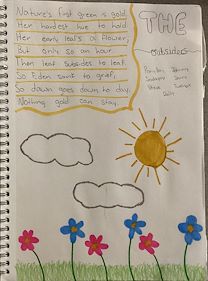 Nature's first green is gold,
Her hardest hue to hold
Her early leaf's a flower,
But only so an hour
Then leaf subsides to leaf.
So Eden sank to grief,
So dawn goes down to day.
Nothing gold can stay.
THE
outsiders
Ponyboy Johnny
Sodapop Darry
Steve Twobit
Dally